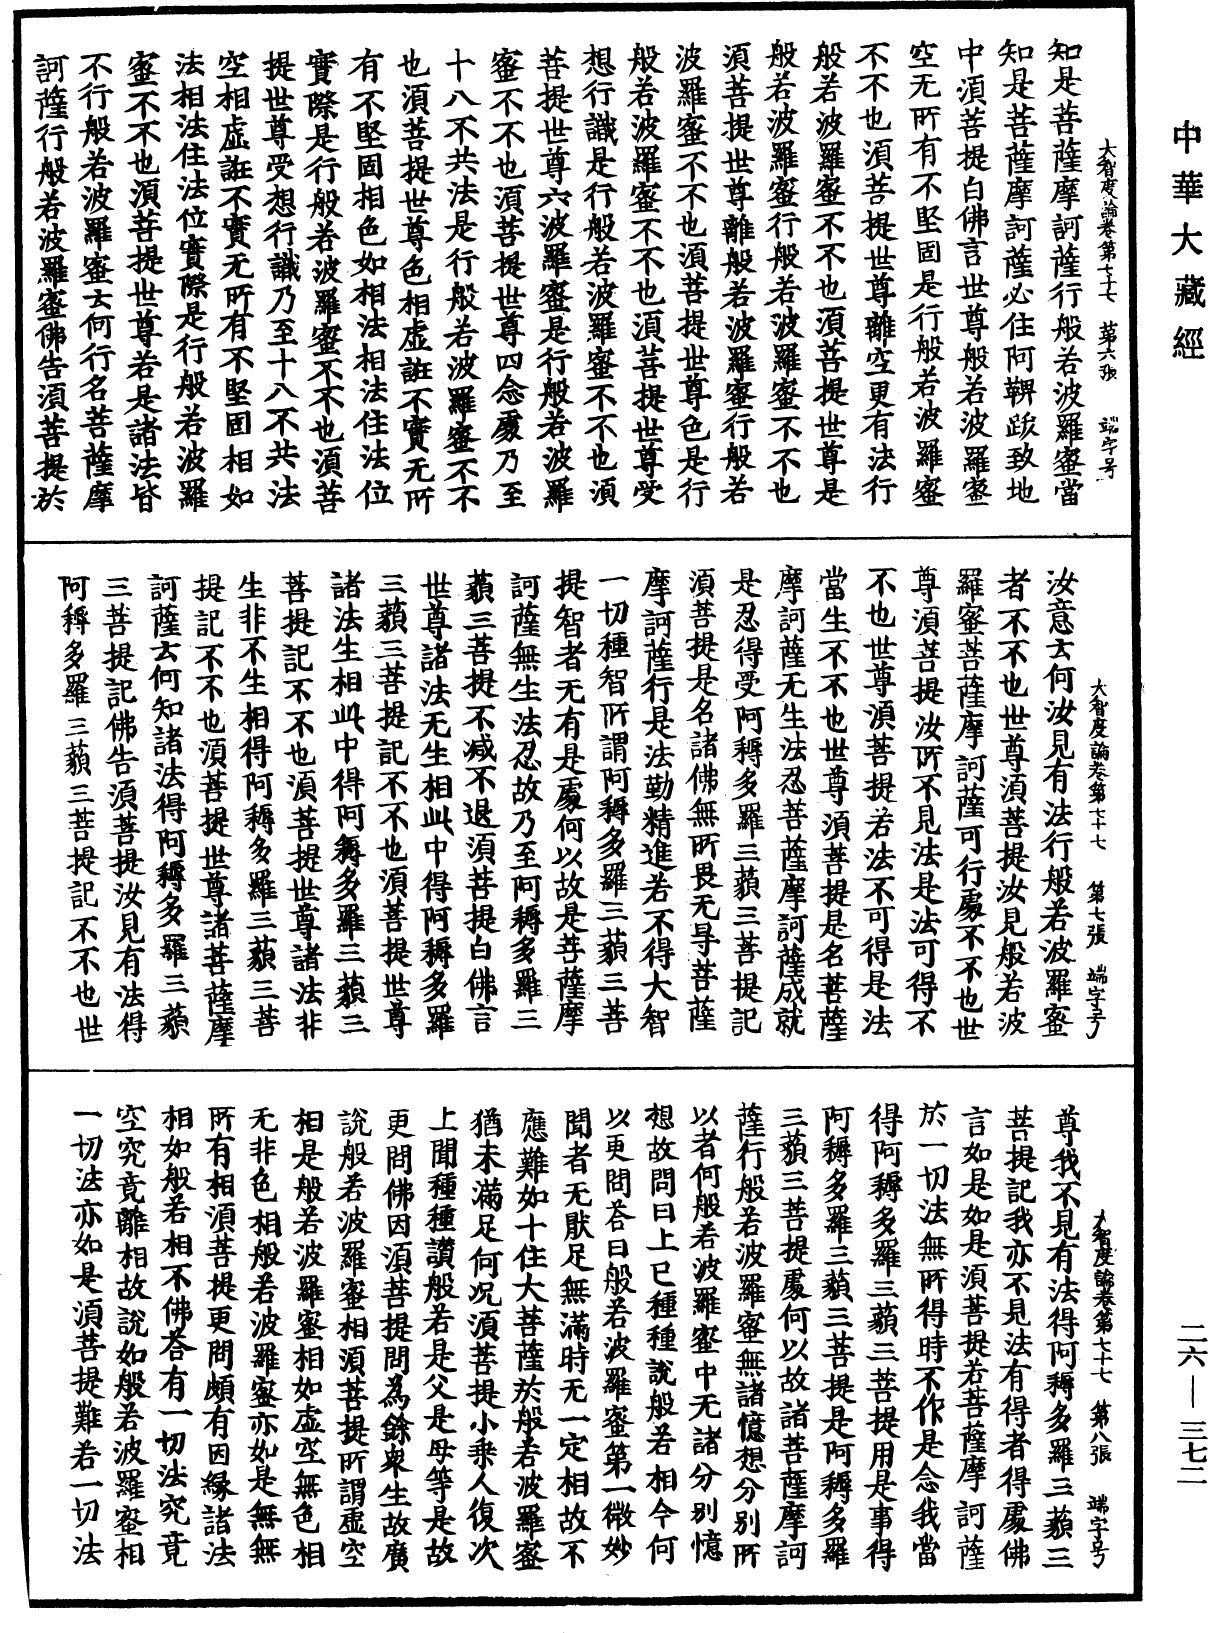 中華大藏經
大智度論卷第七十七 第六張 端字号
知是菩薩摩訶薩行般若波羅蜜當
知是菩薩摩訶薩必住阿鞞跋致地
中須菩提白佛言世尊般若波羅蜜
空无所有不堅固是行般若波羅蜜
不不也須菩提世尊離空更有法行
般若波羅蜜不不也須菩提世尊是
般若波羅蜜行般若波羅蜜不不也
須菩提世尊離般若波羅蜜行般若
波羅蜜不不也須菩提世尊色是行
般若波羅蜜不不也須菩提世尊受
想行識是行般若波羅蜜不不也須
菩提世尊六波羅蜜是行般若波羅
蜜不不也須菩提世尊四念處乃至
十八不共法是行般若波羅蜜不不
也須菩提世尊色相虛誑不實无所
有不堅固相色如相法相法住法位
實際是行般若波羅蜜不不也須菩
提世尊受想行識乃至十八不共法
空相虛誑不實无所有不堅固相如
法相法住法位實際是行般若波羅
蜜不不也須菩提世尊若是諸法皆
不行般若波羅蜜云何行名菩薩摩
訶薩行般若波羅蜜佛告須菩提於
大智度論卷第七十七 第七張 端字号
汝意云何汝見有法行般若波羅蜜
者不不也世尊須菩提汝見般若波
羅蜜菩薩摩訶薩可行處不不也世
尊須菩提汝所不見法是法可得不
不也世尊須菩提若法不可得是法
當生不不也世尊須菩提是名菩薩
摩訶薩无生法忍菩薩摩訶薩成就
是忍得受阿耨多羅三藐三菩提記
須菩提是名諸佛無所畏无㝵菩薩
摩訶薩行是法勤精進若不得大智
一切種智所謂阿耨多羅三藐三菩
提智者无有是處何以故是菩薩摩
訶薩無生法忍故乃至阿耨多羅三
藐三菩提不減不退須菩提白佛言
世尊諸法无生相此中得阿耨多羅
三藐三菩提記不不也須菩提世尊
諸法生相此中得阿耨多羅三藐三
菩提記不不也須菩提世尊諸法非
生非不生相得阿耨多羅三藐三菩
提記不不也須菩提世尊諸菩薩摩
訶薩云何知諸法得阿耨多羅三藐
三菩提記佛告須菩提汝見有法得
阿耨多羅三藐三菩提記不不也世
大智度論卷第七十七 第八張 端字号
尊我不見有法得阿耨多羅三藐三
菩提記我亦不見法有得者得處佛
言如是如是須菩提若菩薩摩訶薩
於一切法無所得時不作是念我當
得阿耨多羅三藐三菩提用是事得
阿耨多羅三藐三菩提是阿耨多羅
三藐三菩提處何以故諸菩薩摩訶
薩行般若波羅蜜無諸憶想分別所
以者何般若波羅蜜中无諸分別憶
想故問曰上已種種說般若相今何
以更問荅曰般若波羅蜜第一微妙
聞者无猒足無滿時无一定相故不
應難如十住大菩薩於般若波羅蜜
猶未滿足何況須菩提小乗人復次
上聞種種讚般若是父是母等是故
更問佛因須菩提問為餘衆生故廣
說般若波羅蜜相須菩提所謂虛空
相是般若波羅蜜相如虛空無色相
无非色相般若波羅蜜亦如是無無
所有相須菩提更問頗有因縁諸法
相如般若相不佛荅有一切法究竟
空究竟離相故說如般若波羅蜜相
一切法亦如是須菩提難若一切法
二六—三七二